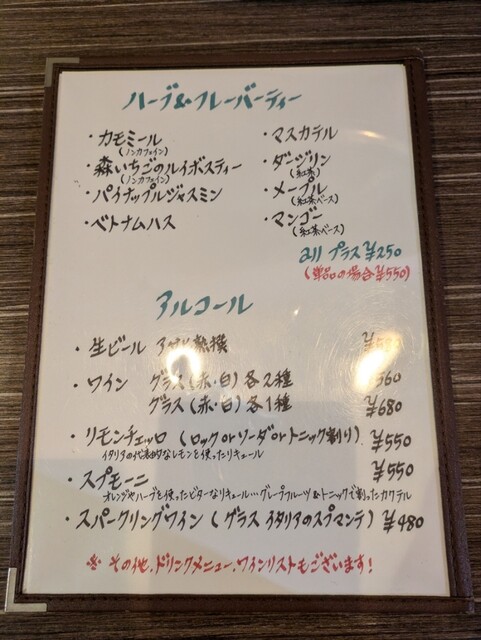 ハーブ&フレーバーティー
・カモミール
(ノンカフェイン)
・森いちごのルイボスティー
(ノンカフェイン)
・パイナップルジャスミン
・ベトナムハス
・マスカテル
・ダージリン
(紅茶)
・メープル
(紅茶ベース)
・マンゴー
(紅茶ベース)
all プラス¥250
(単品の場合¥550)
アルコール
・生ビール アサヒ熟撰
・ワイン グラス(赤・白)各2種 560
グラス(赤・白)各1種 ¥680
・リモンチェッロ (ロックorソーダorトニック割り) ¥550
イタリアの代表的なレモンを使ったリキュール
・スプモーニ ¥550
オレンジやハーブを使ったビターなリキュール…グレープフルーツ&トニックで割ったカクテル
・スパークリングワイン (グラス イタリアのスプマンテ) ¥480
※その他、ドリンクメニュー、ワインリストもございます!